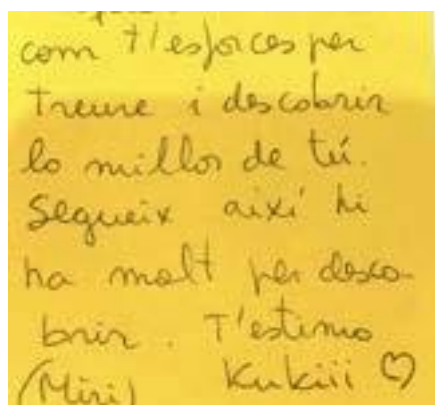 com t'esforces per
treure i descobrir
lo millor de tú.
Segueix així hi
ha molt per desco-
brir. T'estimo
(Miri) Kukiii ♡